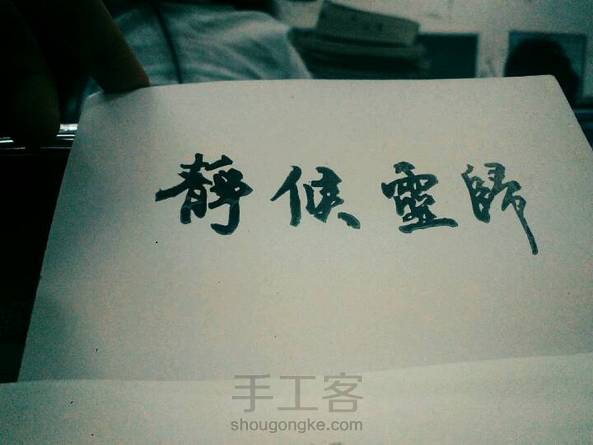 靜候靈歸
手工客
shougongke.com